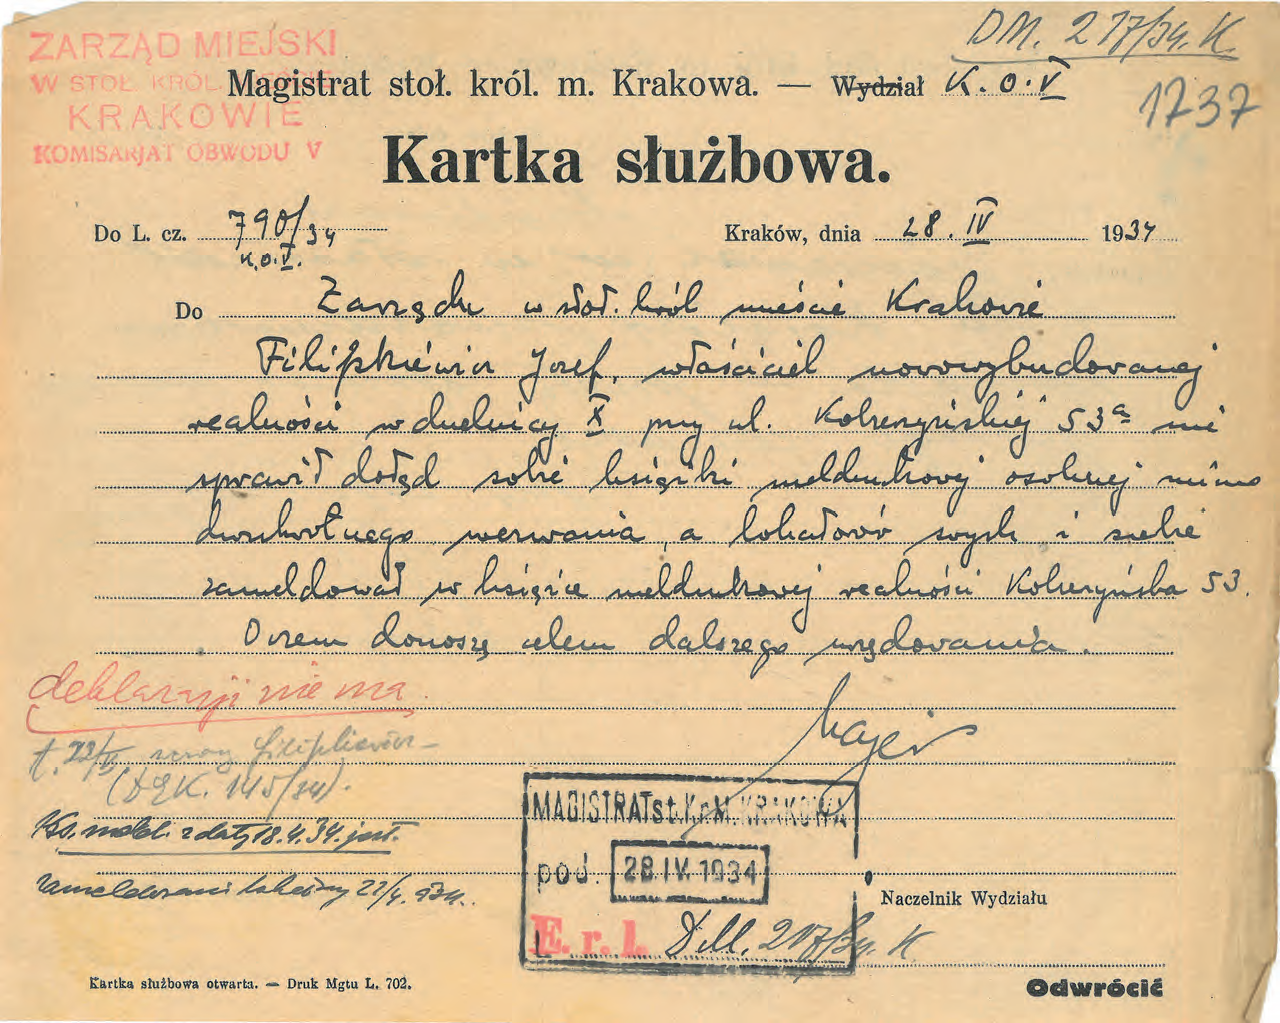 DM. 217/34. K.
ZARZĄD MIEJSKI
W STOŁ. KRÓL.
KRAKOWIE
KOMISARJAT OBWODU V
Magistrat stoł. król. m. Krakowa. — Wydział K.O.V
1737
Kartka służbowa.
Do L. cz. 790/34
K.O.V.
Kraków, dnia 28. IV 1934
Do Zarządu w stoł. król mieście Krakowie
Filipkiewicz Józef, właściciel nowowybudowanej
realności w dzielnicy X przy ul. Kobierzyńskiej 53a nie
sprawił dotąd sobie książki meldunkowej osobnej mimo
dwukrotnego wezwania, a lokatorów swych i siebie
zameldował w książce meldunkowej realności Kobierzyńska 53.
O czem donoszę celem dalszego urzędowania.
deklaracji nie ma.
Majer
(DEK. 145/34).
Ks. meld. z daty 18.4.34. jest.
zameldowani lokatorzy 22/4. 934.
MAGISTRAT st. Kr. M. KRAKOWA
pod. 28 IV. 1934
E. r. l. DM. 217/34. K
Naczelnik Wydziału
Kartka służbowa otwarta. — Druk Mgtu L. 702.
Odwrócić